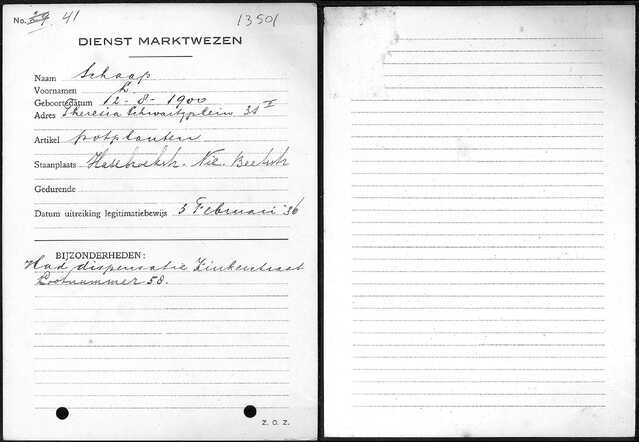 No. 39 41 13501
DIENST MARKTWEZEN
Naam Schaap
Voornamen L.
Geboortedatum 12-8-1900
Adres Theresia Schwartzplein 31 I
Artikel potplanten
Staanplaats Hasebroekstr. Nic. Beetsstr
Gedurende
Datum uitreiking legitimatiebewijs 3 Februari '36
BIJZONDERHEDEN:
Had dispensatie Zinkerstraat
Lootnummer 58.
Z. O. Z.